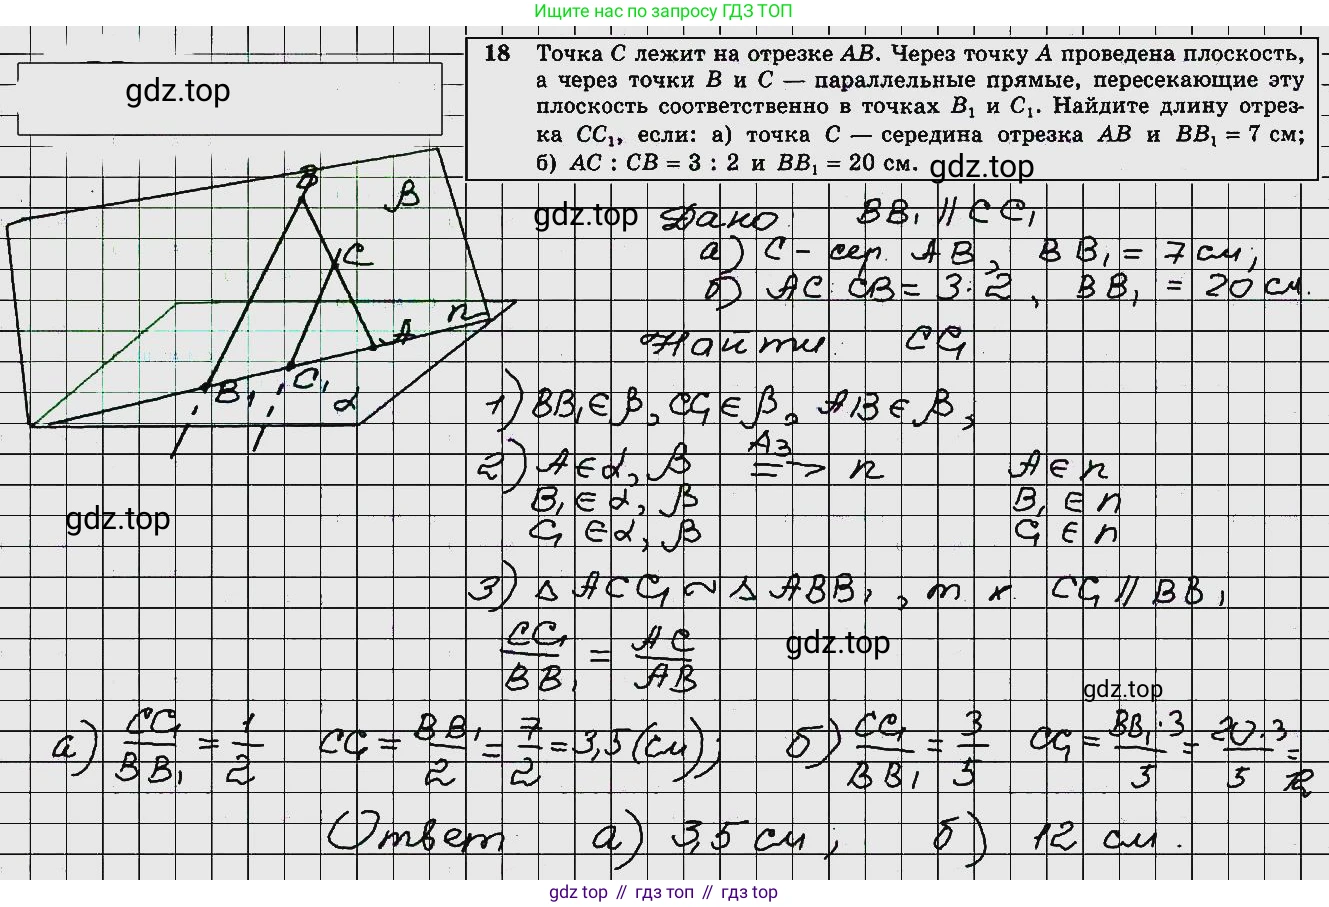 Ищите нас по запросу ГДЗ ТОП
gdz.top
18 Точка C лежит на отрезке AB. Через точку A проведена плоскость,
а через точки B и C — параллельные прямые, пересекающие эту
плоскость соответственно в точках B₁ и C₁. Найдите длину отрез-
ка CC₁, если: а) точка C — середина отрезка AB и BB₁ = 7 см;
б) AC : CB = 3 : 2 и BB₁ = 20 см.
gdz.top
B
β
C
n
A
B₁
C₁
α
gdz.top
gdz.top
Дано: BB₁ || CC₁
а) C - сер. AB, BB₁ = 7 см;
б) AC : CB = 3 : 2, BB₁ = 20 см.
Найти: CC₁
1) BB₁ ∈ β, CC₁ ∈ β, AB ∈ β,
2) A ∈ α, β =A3=> n A ∈ n
B₁ ∈ α, β B₁ ∈ n
C₁ ∈ α, β C₁ ∈ n
3) Δ ACC₁ ~ Δ ABB₁, т. к. CC₁ || BB₁
CC₁/BB₁ = AC/AB
gdz.top
gdz.top
а) CC₁/BB₁ = 1/2 CC₁ = BB₁/2 = 7/2 = 3,5 (см);
б) CC₁/BB₁ = 3/5 CC₁ = BB₁·3/5 = 20·3/5 = 12
Ответ а) 3,5 см; б) 12 см.
gdz.top // гдз топ // гдз top